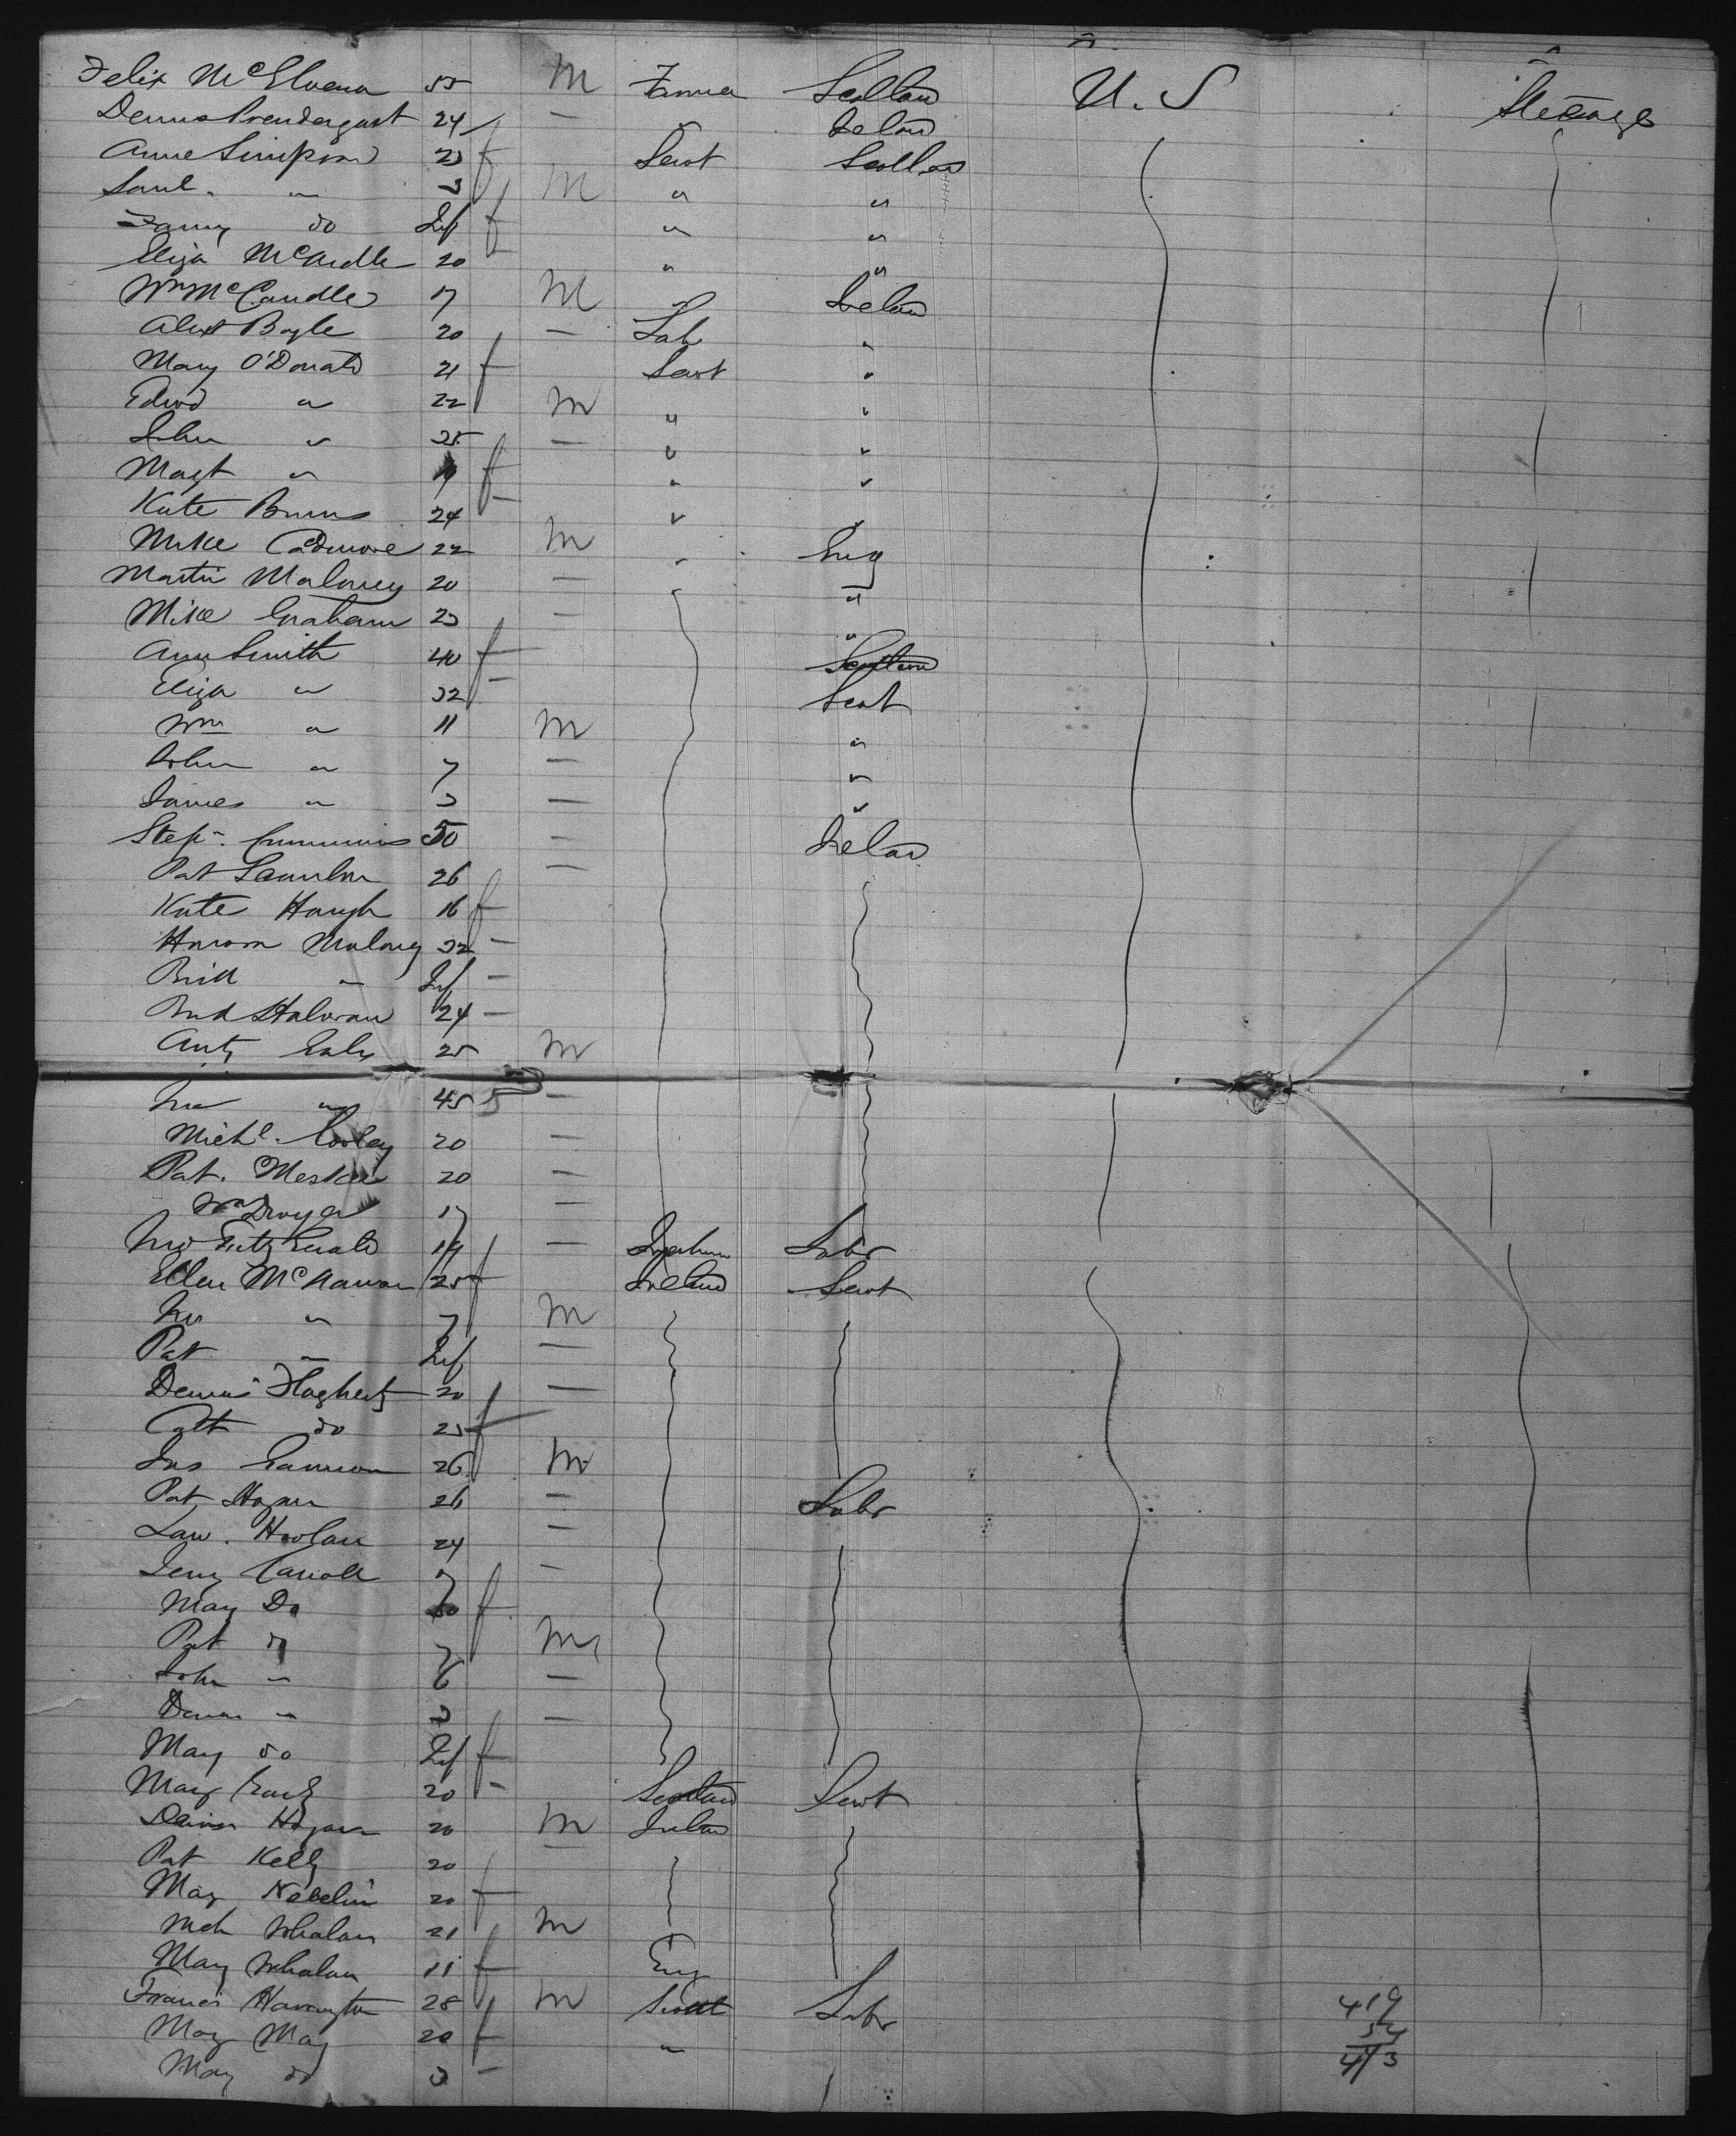 Felix McElvena 55 M Farmer Scotland U.S Steerage
Dennis Prendergast 24 — " Ireland
Anne Simpson 23 f Servt Scotland
Saml. " 3 M " "
Fanny do Inf f " "
Eliza McArdle 20 " "
Wm McCardle 17 M " Ireland
Alex Boyle 20 — Lab "
Mary O'Donald 21 f Servt "
Edwd " 22 M " "
John " 25 — " "
Magt " 19 f " "
Kate Burns 24 — " "
Mike 22 M " Eng
Martin Maloney 20 — " "
Mike Graham 23 — "
Ann Smith 40 f Scotland
Eliza " 32 — Scot
Wm " 11 M "
John " 7 — "
James " 3 — "
Step. Cummins 50 — Irelan
Pat Scanlon 26 —
Kate Haugh 16 f
Honora Malony 32 —
Brid " Inf —
Brid Halloran 24 —
Anty 25 M
Jno " 45 —
Michl. Cooley 20 —
Pat. Meskil 20 —
Wm Dwyer 17 —
Jno Fitz Gerald 19 — Labr
Ellen McNamar 25 f Ireland Servt
Jno " 7 M
Pat " Inf —
Dennis Flagherty 20 —
Cath do 25 f
Jas 26 M
Pat Hogan 26 — Labr
Law. Hoolan 24 —
Jerry Carroll —
May Do 30 f
Pat do 7 M
John " 6 —
Denis " 3 —
May do Inf f
Mary 20 — Scotland Servt
Dennis Hogan 20 M Irelan
Pat Kelly 20 —
May 20 f
Mch Whalan 21 M
May Whalan 11 f Eng
Francis Harrington 28 M Scott Labr
May May 20 f "
May do 3 —
419
54
473